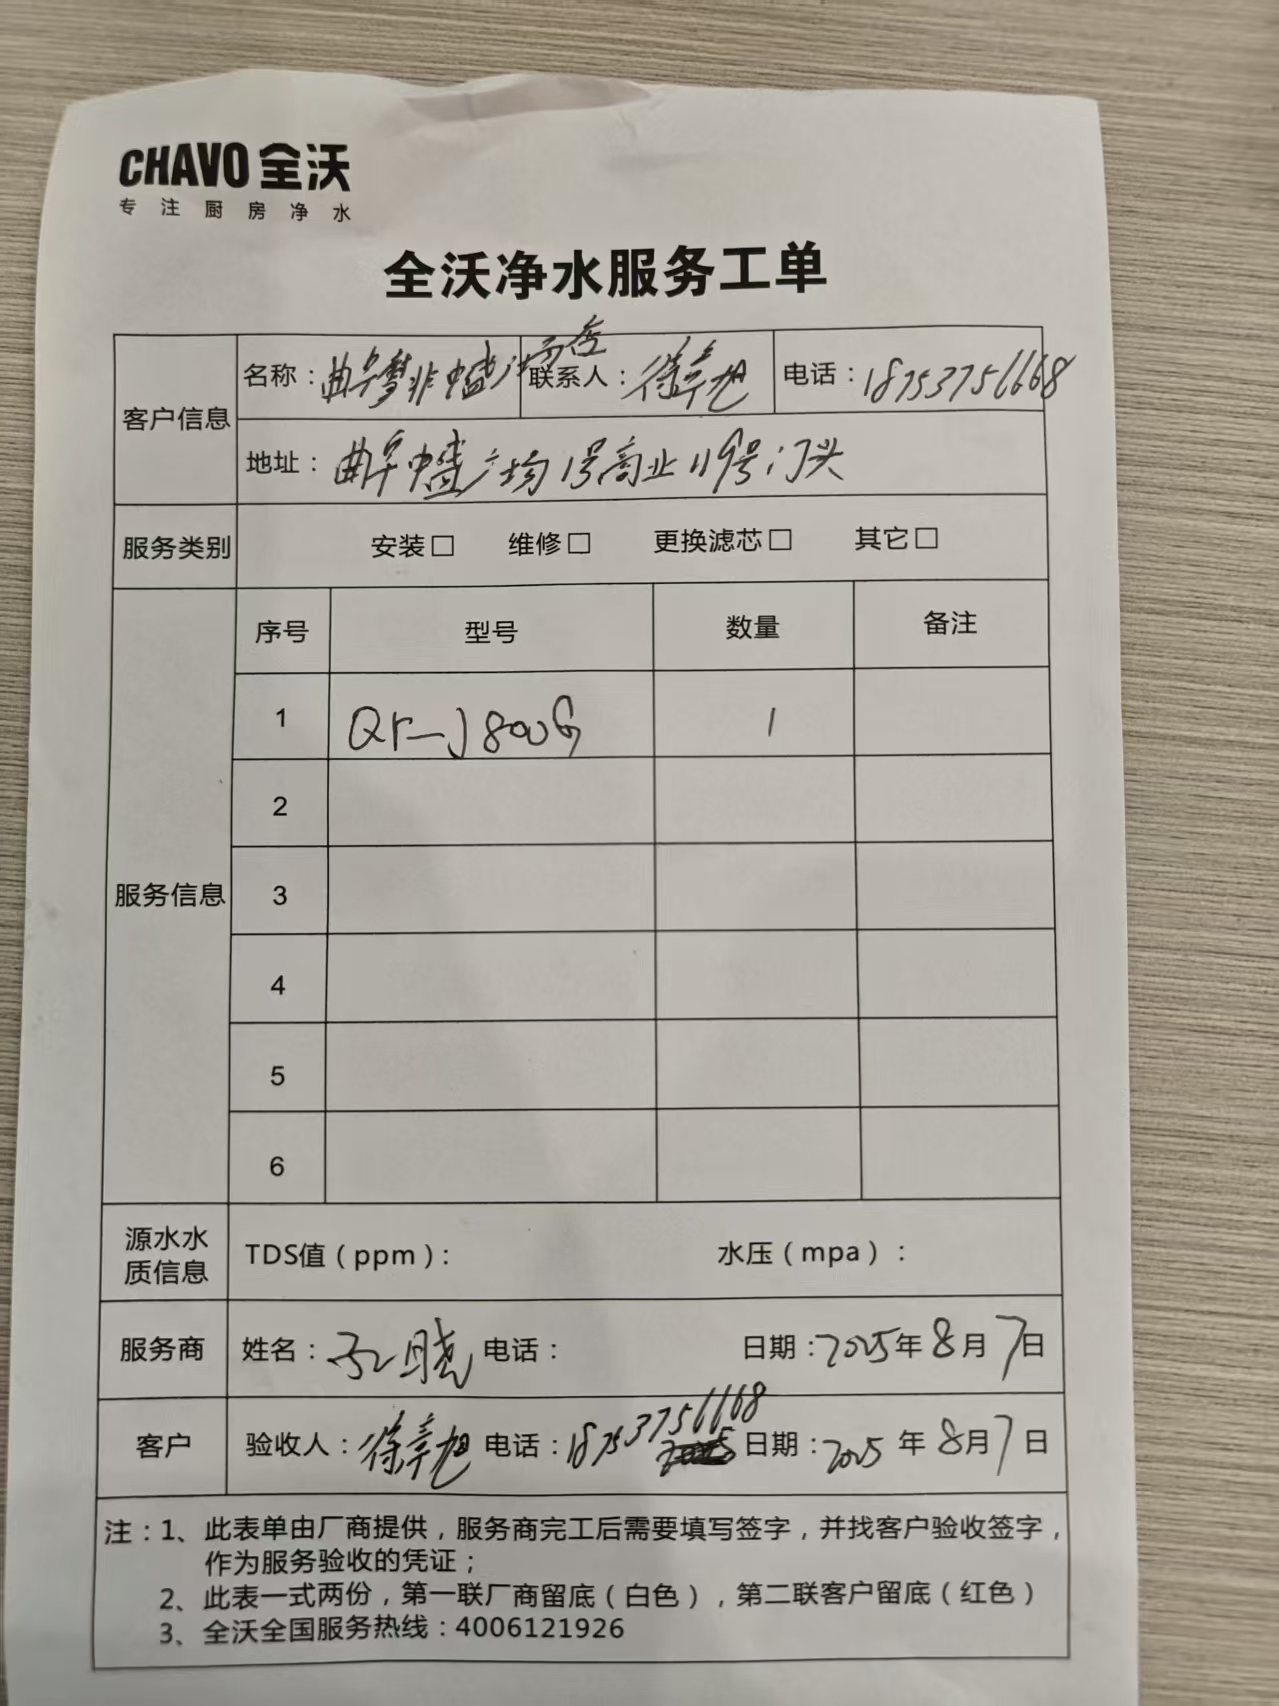 CHAVO 全沃
专注厨房净水
全沃净水服务工单
客户信息
名称：曲阜梦非中盛广场店 联系人： 电话：18753756668
地址：曲阜中盛广场1号商业119号门头
服务类别 安装□ 维修□ 更换滤芯□ 其它□
服务信息
序号 型号 数量 备注
1 QY-J800G 1
2
3
4
5
6
源水水质信息 TDS值（ppm）： 水压（mpa）：
服务商 姓名： 电话： 日期：2025年8月7日
客户 验收人： 电话：18753756668 日期：2025年8月7日
注：1、此表单由厂商提供，服务商完工后需要填写签字，并找客户验收签字，
作为服务验收的凭证；
2、此表一式两份，第一联厂商留底（白色），第二联客户留底（红色）
3、全沃全国服务热线：4006121926